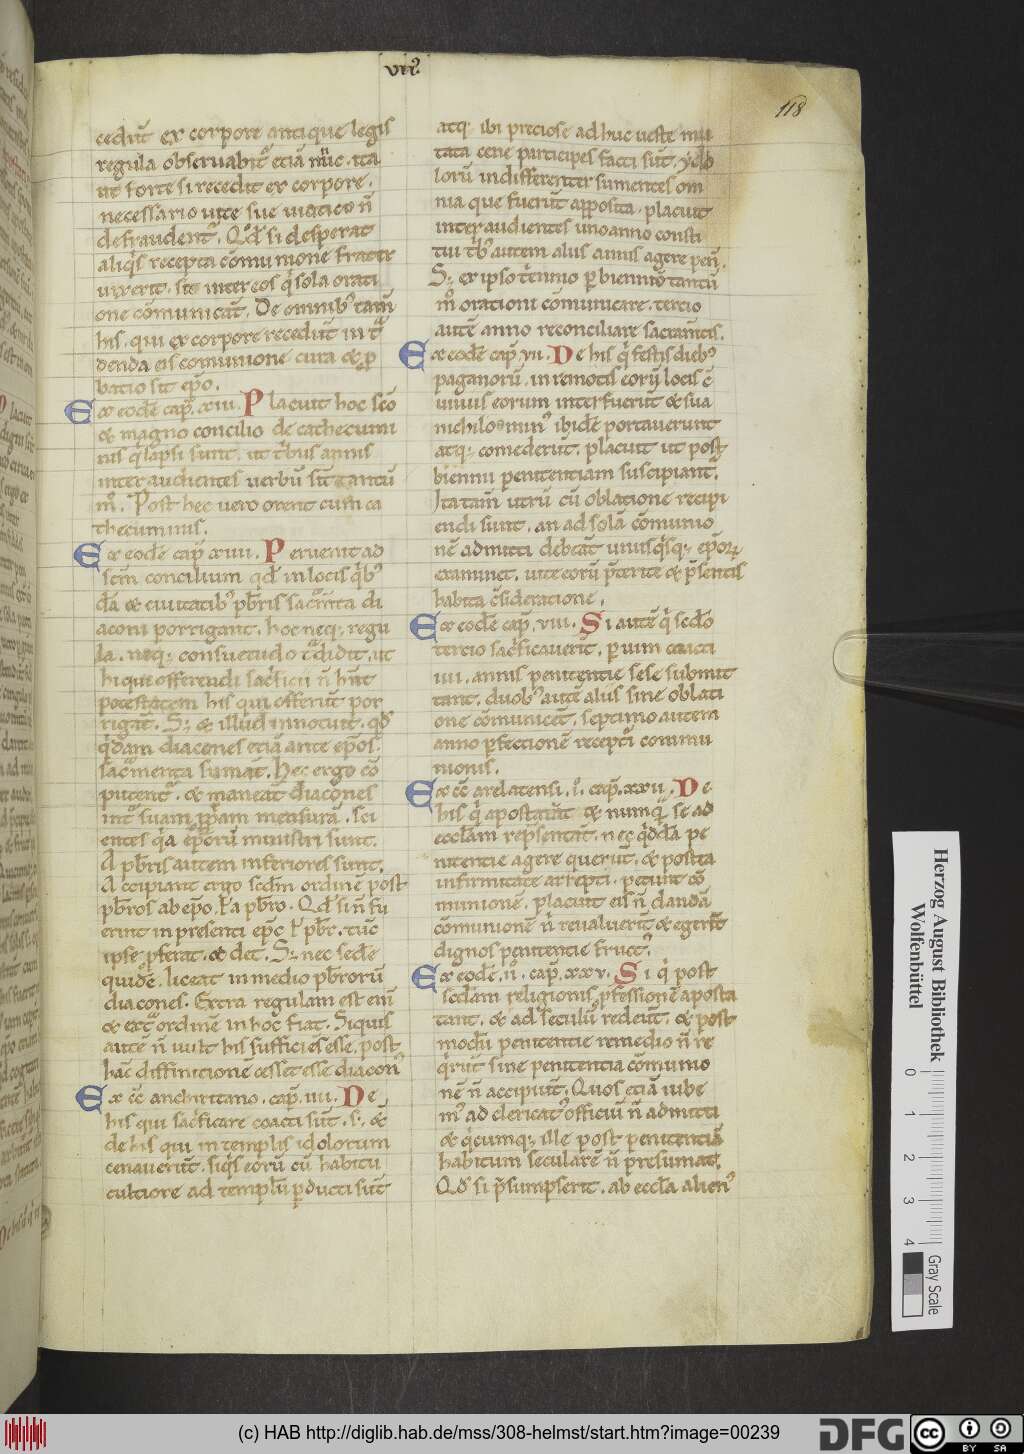 VII.
118
cedunt ex corpore antique legis
regula obseruabit᷑ etiā nūc. ita
ut forte si recedit ex corpore.
necessario uite sue uiatico n̄
defraudent᷑. Qđ si desperat
aliq̇s recepta cōmunione frater
uixerit. sit inter eos q̇ sola orati
one cōmunicāt. De omnib᷒ tam̄
his. qui ex corpore recedūt in tᷓ
denda eis cōmunione cura & ꝓ
batio sit ep̄o.
Ex eodē cap̄. xiii. Placuit hoc sc̄o
& magno concilio de cathecumi
nis q̇ lapsi sunt. ut tͥbus annis
inter audientes uerbū sīt tantū
m̊. Post hec uero orent cum ca
thecuminis.
Ex eodē cap̄ xiiii. Peruenit ad
sc̄m concilium qđ in locis q̇b᷒
dā & ciuitatib᷒ pb̄ris sacm̄ta di
aconi porrigant. hoc neq; regu
la. neq; consuetudo tᷓdidit. ut
hi qui offerendi sacͥficii n̄ hn̄t
potestatem his qui offerūt por
rigāt. S; & illud innotuit. qđ
q̇dam diacones etiā ante ep̄os.
sacᷓmenta sumāt. Hec ergo cō
putent᷑. & maneāt diacones
int᷑ suam ꝓpͥam mensurā. sci
entes q̇a ep̄orū ministri sunt.
A pb̄ris autem inferiores sunt.
Accipiant ergo scđm ordinē post
pb̄ros ab ep̄o. ł a pb̄ro. Qđ si n̄ fu
erint in presenti ep̄c ł pb̄r. tūc
ipse ꝓferat. & det. S; nec sede
quidē. liceat in medio pb̄rorū
diacones. Extra regulam est eni
& extᷓ ordinē in hoc fiat. Siquis
autē n̄ uult his sufficiēs esse. post
hāc diffinicionē cesset esse diacon᷒
Ex cc̄ anchiritano. cap̄. iiii. De
his qui sacͥficare coacti sūt. s; &
de his qui in templis idolorum
cenauerūt. siq̇s eorū cū habitu
cultiore ad templū ꝑducti sūt
atq; ibi preciose adhuc ueste mu
tata cene participes facti sūt. ydo
lorū indifferenter sumentes om
nia que fuerūt apposita. placuit
inter audientes uno anno consti
tui. tͥb᷒ autem aliis annis agere pen̄.
S; ex ipso tͥennio ꝑ bienniō tantū
m̊ orationi cōmunicare. tercio
autē anno reconciliare sacram̄tis.
Ex eodē cap̄. vii. De his q̇ festis dieb᷒
paganorū. in remotis eorū locis ꝯ
uiuiis eorum interfuerūt & sua
nichilomin᷒ ibidē portauerunt
atq; comederūt. placuit ut post
biennii penitentiam suscipiant.
Ita tam̄ utrū cū oblatione recipi
endi sunt. an ad solā cōmunio
nē admitti debeāt unusq̇sq; ep̄oꝝ
examinet. uite eorū p̄terite & p̄sentis
habita ꝯsideratione.
Ex eodē cap̄. viii. Si autē q̇ scđo
tercio sacͥficauerīt. ꝑ uim coacti
iiii. annis penitentie sese submit
tant. duob᷒ autē aliis sine oblati
one cōmunicēt. septimo autem
anno ꝑfectionē recepti commu
nionis.
Ex cc̄ arelatensi. i. cap̄. xxii. De
his q̇ apostatāt & numq̄ se ad
ecclam rep̄sentāt. nec q̇dđa pe
nitentie agere querūt. & postea
infirmitate arrepti. petunt cō
munionē. placuit eis n̄ dandā
cōmunionē n̄ reualuerīt & egerīt
dignos penitentie fruct᷒.
Ex eodē. ii. cap̄. xxv. Si q̇ post
scđam religionis ꝓfessionē aposta
tant. & ad seculū redeūt. & post
modū penitentie remedio n̄ re
q̇rūt sine penitentia cōmunio
nē n̄ accipiūt. Quos etiā iube
m᷒ ad clericat᷒ officiū n̄ admitti
& q̇cumq; ille post penitentiā
habitum secularē n̄ presumat.
Qđ si p̄sumpserit. ab eccla alien᷒
Herzog August Bibliothek
Wolfenbüttel
0 1 2 3 4
Gray Scale
(c) HAB http://diglib.hab.de/mss/308-helmst/start.htm?image=00239
DFG
cc BY SA